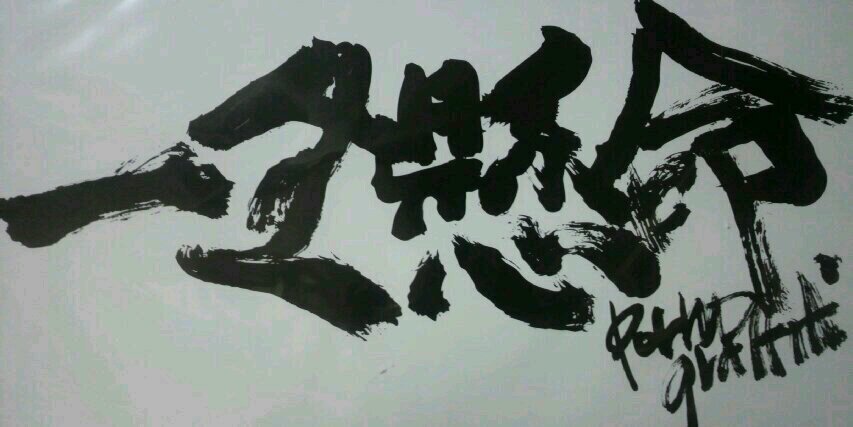 一生懸命
PORNO
graffitti